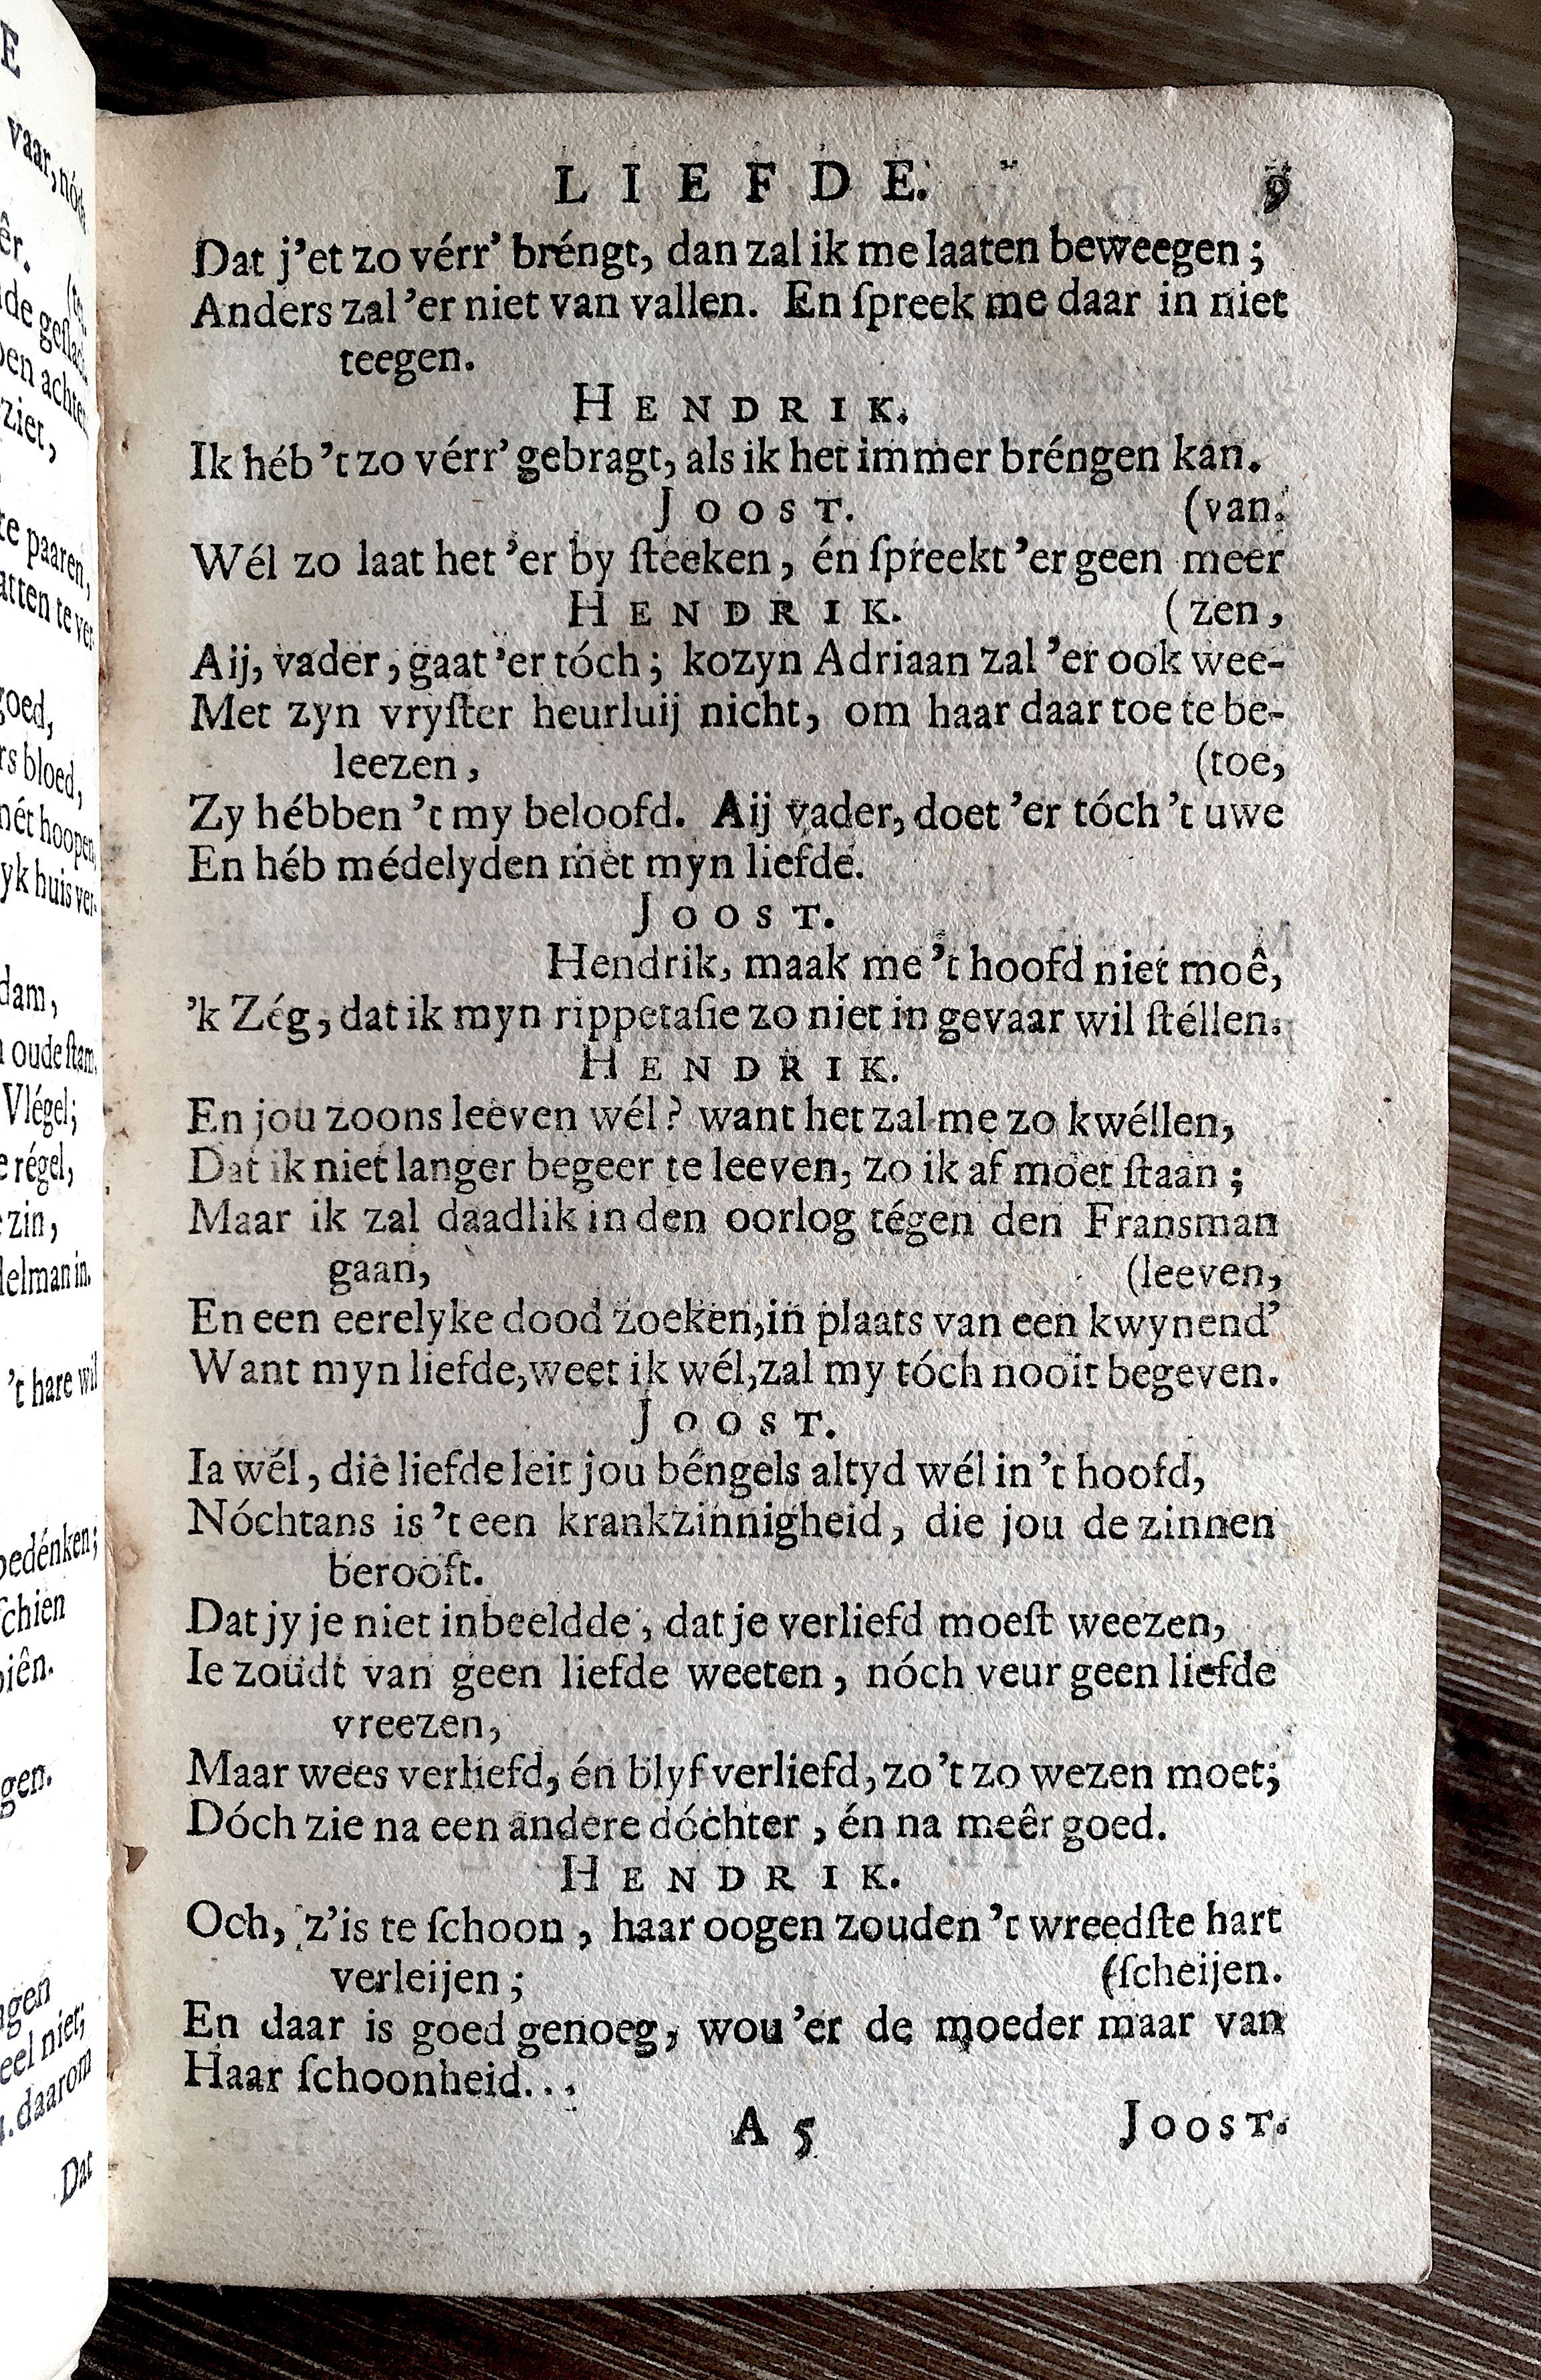 LIEFDE. 9
Dat j'et zo vérr' bréngt, dan zal ik me laaten beweegen;
Anders zal 'er niet van vallen. En ſpreek me daar in niet
teegen.
HENDRIK.
Ik héb 't zo vérr' gebragt, als ik het immer bréngen kan.
JOOST. (van.
Wél zo laat het 'er by ſteeken, én ſpreekt 'er geen meer
HENDRIK. (zen,
Aij, vader, gaat 'er tóch; kozyn Adriaan zal 'er ook wee-
Met zyn vryſter heurluij nicht, om haar daar toe te be-
leezen, (toe,
Zy hébben 't my beloofd. Aij vader, doet 'er tóch 't uwe
En héb médelyden met myn liefde.
JOOST.
Hendrik, maak me 't hoofd niet moê,
'k Zég, dat ik myn rippetaſie zo niet in gevaar wil ſtéllen.
HENDRIK.
En jou zoons leeven wél? want het zal me zo kwéllen,
Dat ik niet langer begeer te leeven, zo ik af moet ſtaan;
Maar ik zal daadlik in den oorlog tégen den Fransman
gaan, (leeven,
En een eerelyke dood zoeken, in plaats van een kwynend'
Want myn liefde, weet ik wél, zal my tóch nooit begeven.
JOOST.
Ia wél, die liefde leit jou béngels altyd wél in 't hoofd,
Nóchtans is 't een krankzinnigheid, die jou de zinnen
berooft.
Dat jy je niet inbeeldde, dat je verliefd moeſt weezen,
Ie zoudt van geen liefde weeten, nóch veur geen liefde
vreezen,
Maar wees verliefd, én blyf verliefd, zo 't zo wezen moet;
Dóch zie na een andere dóchter, én na meêr goed.
HENDRIK.
Och, z'is te ſchoon, haar oogen zouden 't wreedſte hart
verleijen; (ſcheijen.
En daar is goed genoeg, wou 'er de moeder maar van
Haar ſchoonheid...
A 5 JOOST.